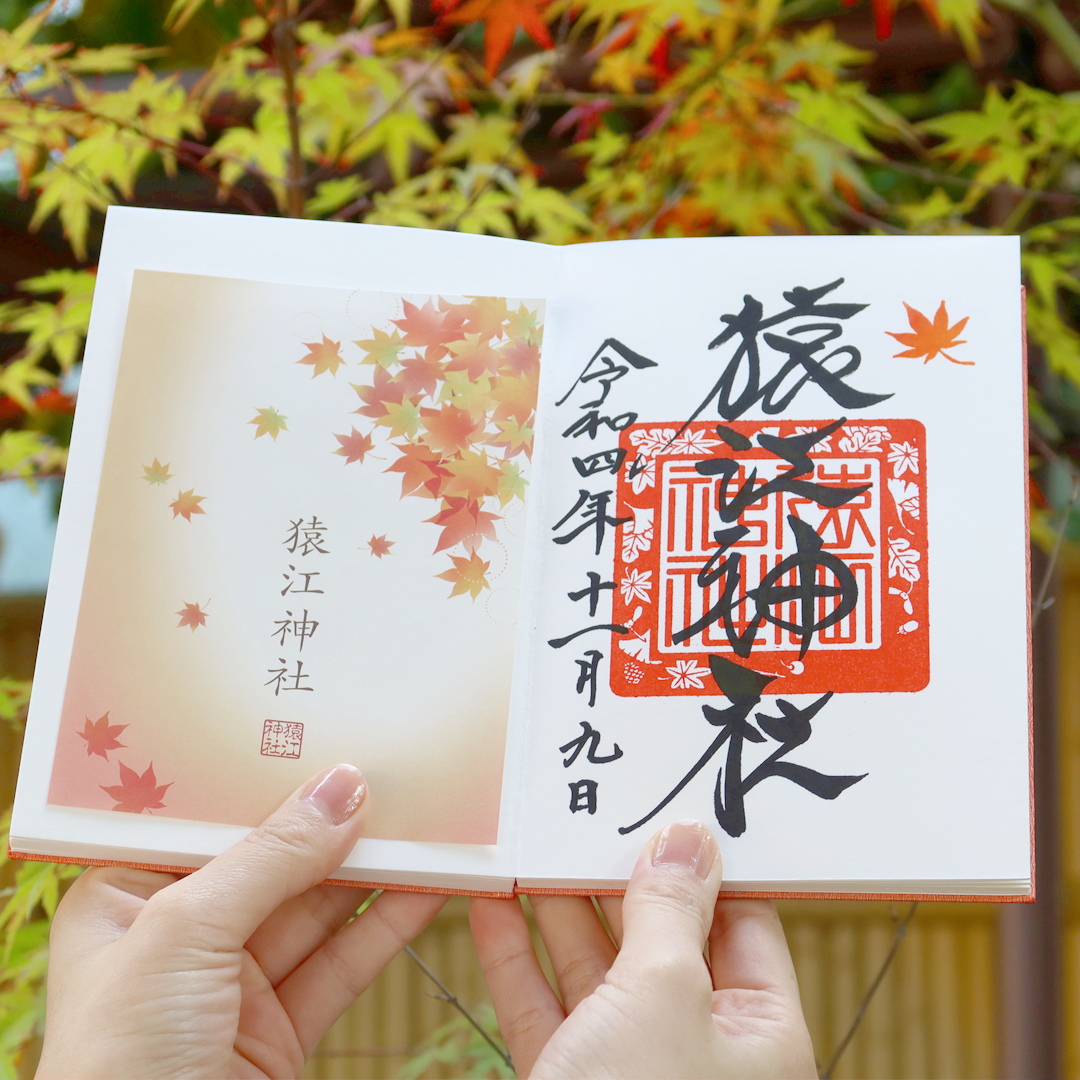 猿江神社
猿江神社
猿江神社
猿江神社
令和四年十一月九日